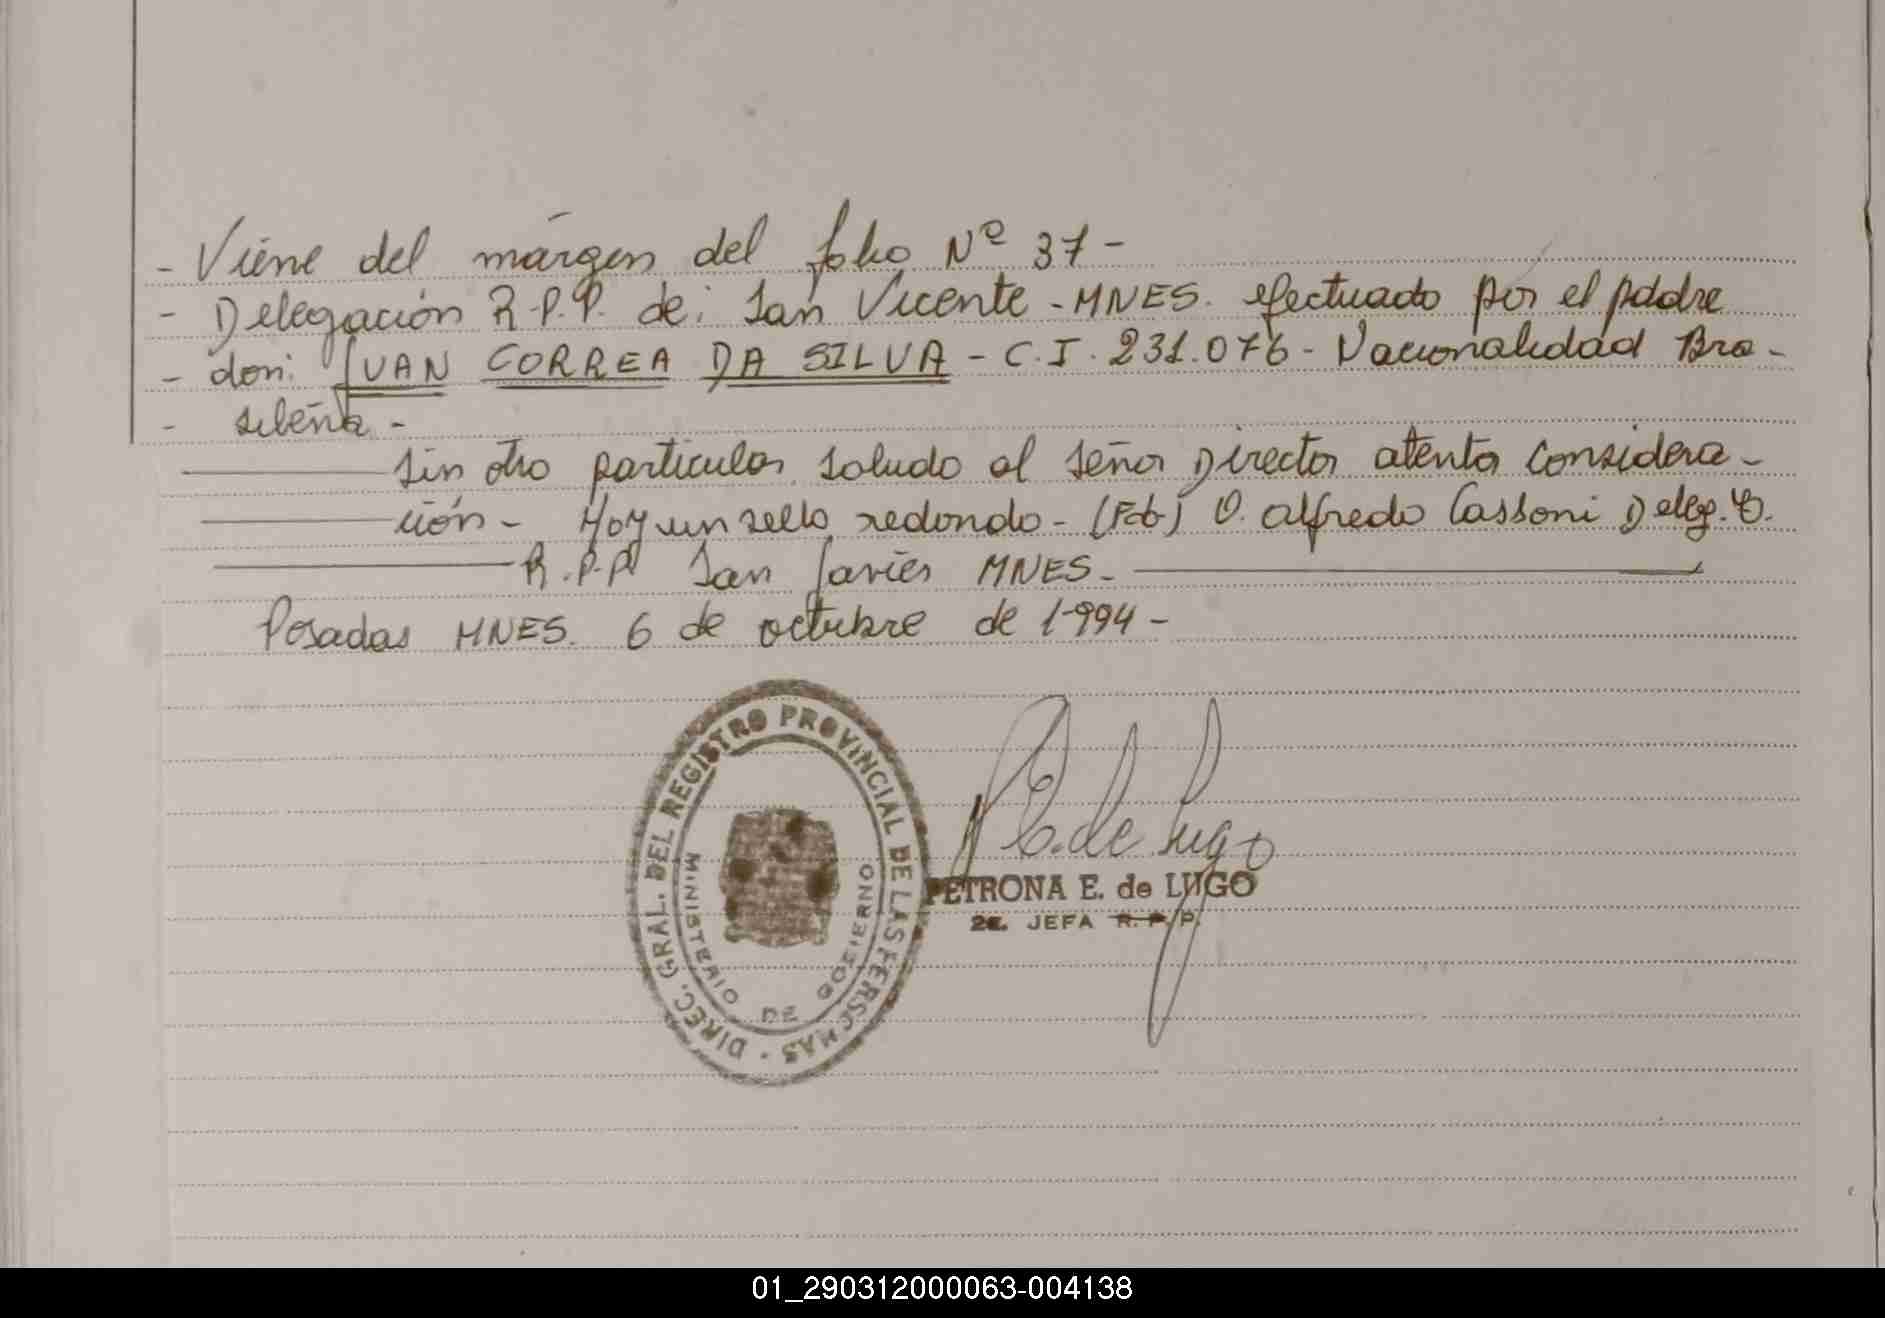 - Viene del márgen del folio Nº 37 -
- Delegación R.P.P. de: San Vicente - MNES. efectuado por el padre
- don: JUAN CORREA DA SILVA - C.I. 231.076 - Nacionalidad Bra-
- sileña -
Sin otro particular saludo al Señor Director atenta considera-
ción - Hay un sello redondo - (Fdo) O. Alfredo Cassoni Deleg.
R.P.P. San Javier MNES.
Posadas MNES. 6 de octubre de 1994 -
DIREC. GRAL. DEL REGISTRO PROVINCIAL DE LAS PERSONAS
MINISTERIO DE GOBIERNO
E. de Lugo
PETRONA E. de LUGO
2a. JEFA R.P.P.
01_290312000063-004138